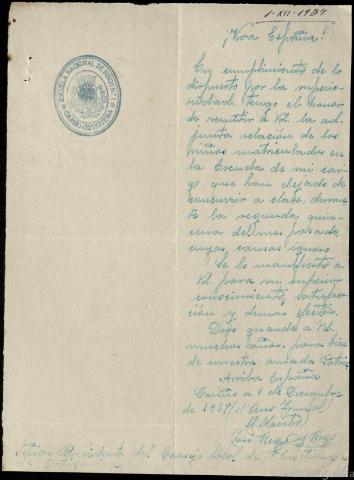 1-XII-1937
¡Viva España!
ESCUELA NACIONAL DE NIÑOS
En cumplimiento de lo
dispuesto por la superio-
ridad tengo el honor
de remitir á Vd. la ad-
junta relación de los
niños matriculados en
la Escuela de mi car-
go, que han dejado de
concurrir a clase, duran-
te la segunda quin-
cena del mes pasado,
cuyas causas ignoro.
Lo manifiesto a
Vd. para su superior
conocimiento, satisfac-
ción y demás efectos.
Dios guarde a Vd.
muchos años, para bien
de nuestra amada Patria
Arriba España
a 1 de Diciembre
de 1937 (II Año Triunfal)
El Maestro
José
Señor Presidente del Consejo local de 1ª Enseñanza